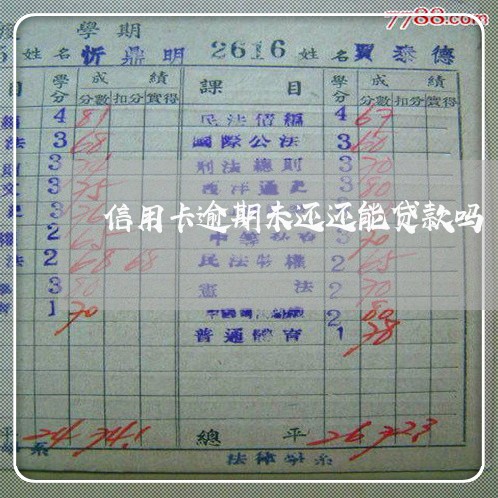 7788.com
學期
5 姓名 忻鼎明 2616 姓名 賈泰德
目 學分 成績 課目 學分 成績
分數 扣分 實得 分數 扣分 實得
4 81 民法債編 4 67
法 3 68 國際公法 3 60
3 刑法總則 3 70
3 75 西洋通史 3 80
3 76
信用卡逾期未还还能贷款吗
2 65 3 70
法 2 68 68 民法物權 2 65
3 80 憲法 2 70
1 70 2 80
普通體育 1 78
平 24 74.1 總平 26 72.3
系 法律學系